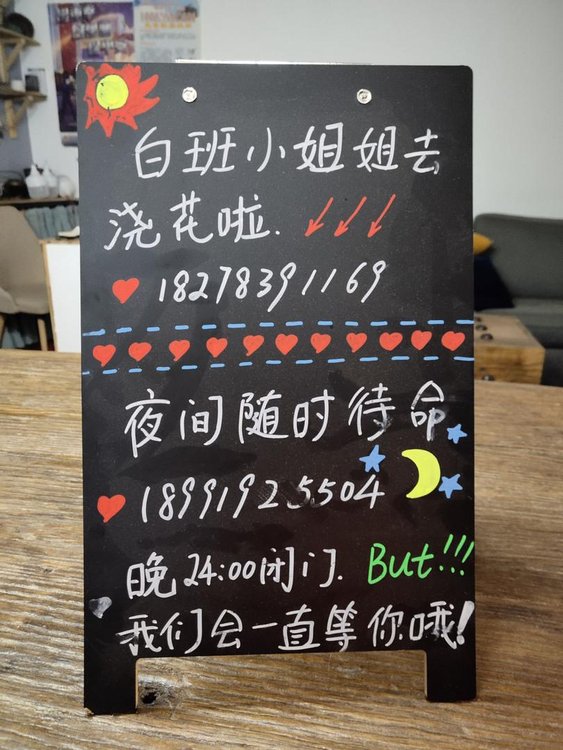 白班小姐姐去
浇花啦.
18278391169
夜间随时待命
18991925504
晚24:00闭门. But!!!
我们会一直等你哦!